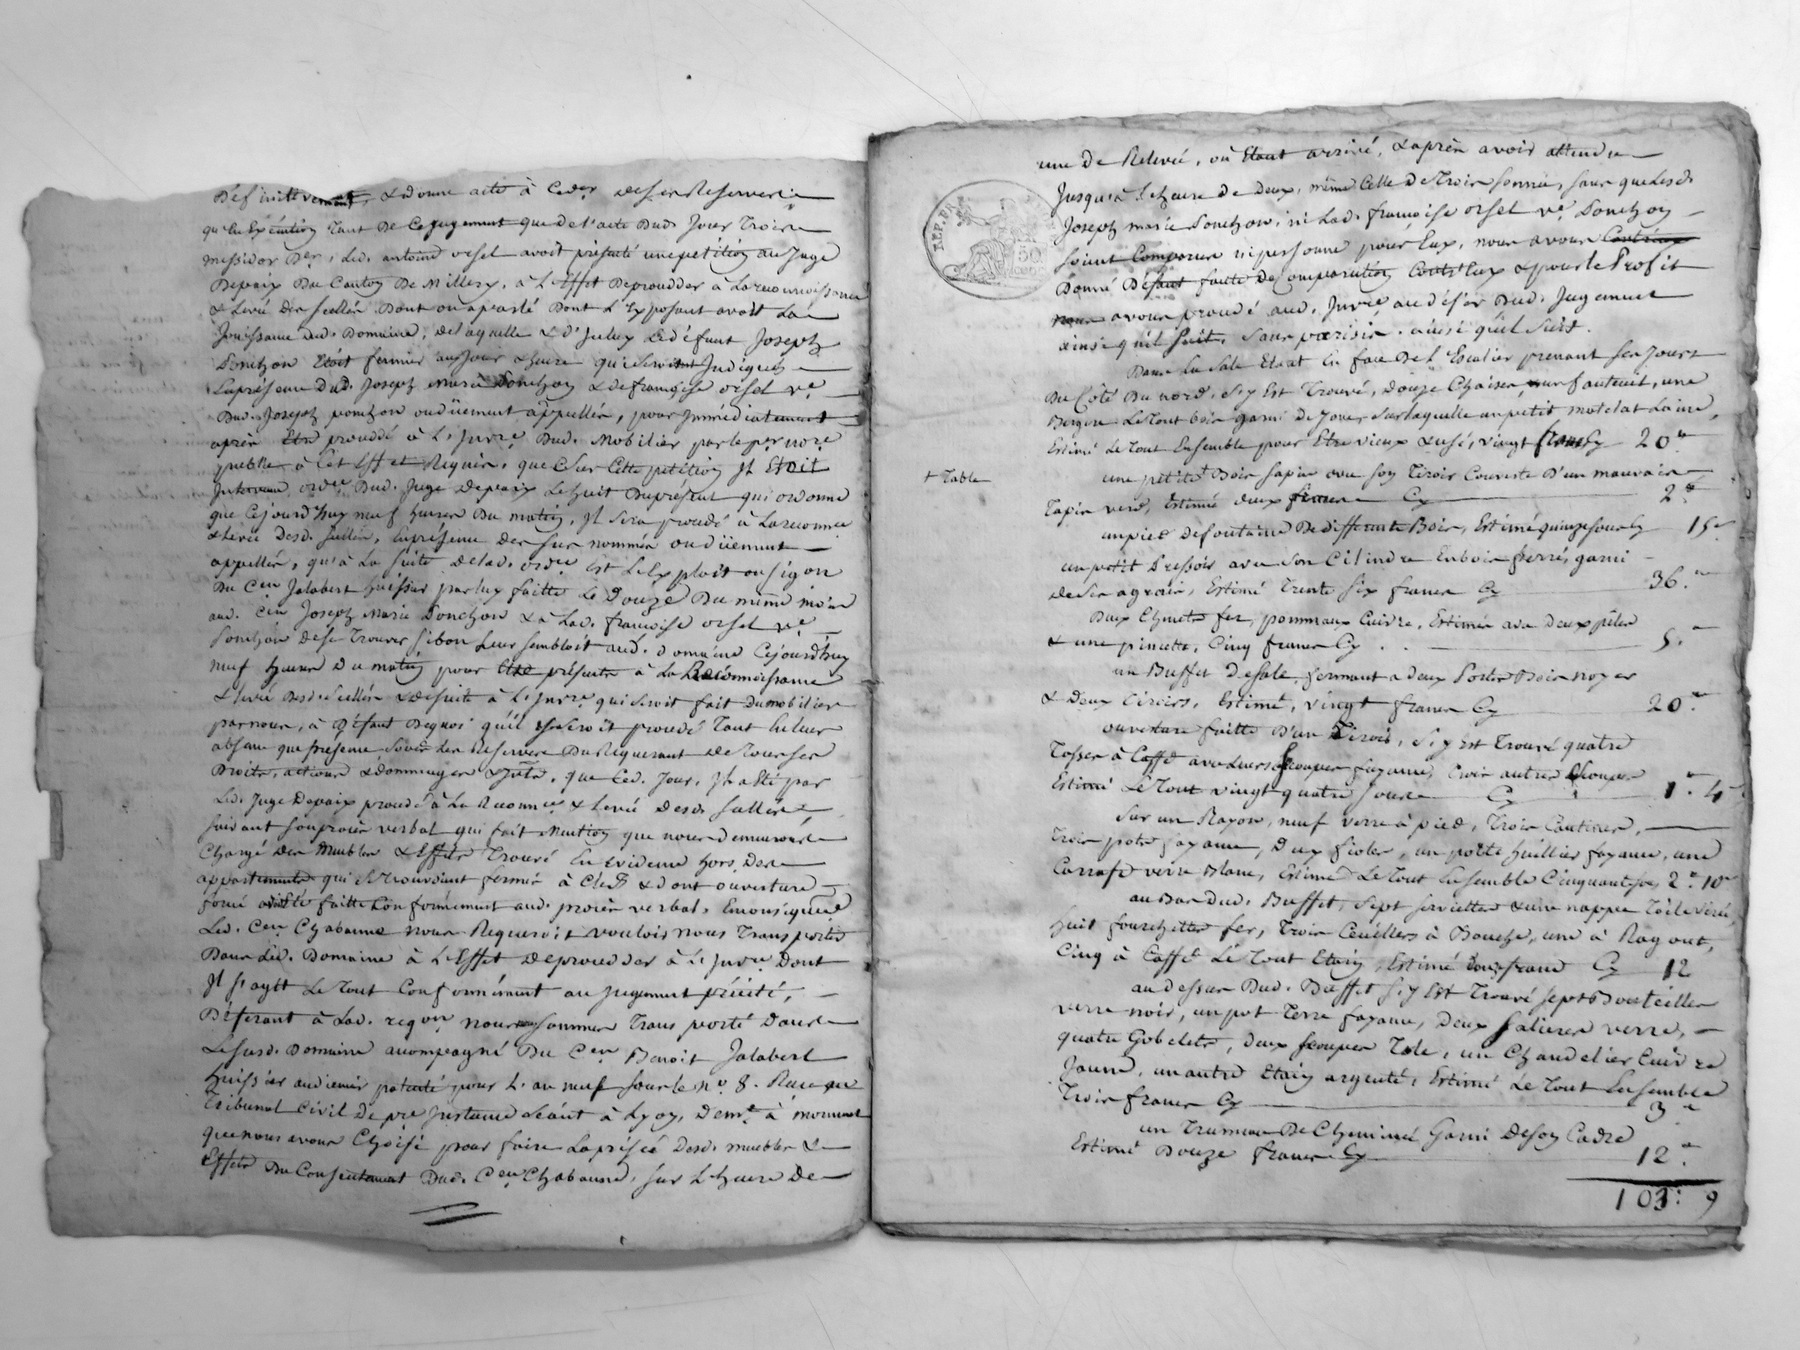 Deffinittivement, & donne acte à Ced.er de ses Reserves
qu'en Exécution Tant de Ce jugement que de l'acte Dud. Jour Troize
messidor D.er, Led. antoine orsel avoit présenté une petition au Juge
Depaix Du Canton De Millery, à L'Effet De proceder à La reconnoissance
& Levée Des Scellés Dont on a parlé Dont L'Exposant avoit La
Jouissance dud. Domaine, de laquelle & d'Iceluy Le défunt Joseph
Ponchon Etoit fermier aux Jour & heure qui seroient Indiqués
En présence Dud. Joseph Marie Ponchon & de françoise orsel v.e
Dud. Joseph ponchon ou düement appellés, pour Immédiatement
après Etre procédé à L'Inv.re Dud. Mobilier par le p.er no.re
publle à Cet Effet Requis, que Sur Cette petition Il Etoit
Intervenu ord.ce Dud. Juge Depaix Le huit Du présent qui ordonne
que Cejourd'huy neuf heures Du matin, Il sera procedé à La reconn.ce
& Levée desd. Scellés, En présence des sus nommés ou düement
appellés, qu'à La Suite de lad. ord.ce Est L'Exploit en sigon
Du C.en Jalabert huissier par luy faitte Le Douze Du même mois
aud. C.en Joseph Marie Ponchon & à Lad. francoise orsel v.e
Ponchon de se Trouver si bon Leur sembloit aud. Domaine Cejourd'huy
neuf heures Du matin pour Etre présents à La Reconnoissance
& Levée Desd. Scellés & de suite à L'Inv.re qui seroit fait du mobilier
par nous, à Défaut De quoi qu'il y Seroit procedé Tant En leur
absence que présence Sous les Reserves Du Requerant De Tous ses
Droits, actions & dommages & Jnts, que Ced. Jour, Il a Eté par
Led. Juge Depaix procedé à La Reconn.ce & Levée Desd. Scellés
suivant son procès verbal qui fait Mention que nous demeurons
Chargé Des Meubles & Effets Trouvés En Evidence hors des
appartements qui se trouvoient fermés à Clefs & dont ouverture
forcé a Eté faitte Conformément aud. procès verbal,
Led. C.en Chabanne nous Requeroit vouloir nous Transporter
Dans Led. Domaine à L'Effet De proceder à L'Inv.re Dont
Il s'agit Le Tout Conformément au Jugement précité,
Déferant à Lad. reqon nous nous sommes Transporté Dans
Le susd. Domaine accompagné Du C.en Benoit Jalabert
huissier audiencier patenté pour L'an neuf sous le n.o 8. Reçu au
Tribunal Civil De p.re Instance séant à Lyon, Dem.t à mornant
que nous avons Choisi pour faire La prisée Desd. meubles &
Effets Du Consentement Dud. C.en Chabanne, sur L'heure De
une De Relevée, où Etant arrivé, & après avoir attendu
Jusqu'à L'heure De Deux, même Celle De Trois sonnée, sans que Lesd.
Joseph marie Ponchon, ni Lad. françoise orsel v.e Ponchon
soient Comparus ni personne pour Eux, nous avons
Donné Défaut faute De Comparution Contr'Eux & pour le Profit
nous avons procedé aud. Inv.re au désir Dud. Jugement
ainsi qu'il suit.
Dans La Sale Etant En face De L'Escalier prenant ses Jours
Du Côté Du nord, s'y Est Trouvé, Douze Chaises, un fauteuil, une
Bergere Le Tout bois garni de Joncs sur laquelle un petit matelat Laine,
Estimé Le Tout Ensemble pour Etre vieux & usé, vingt francs Cy 20.
une petite + Bois sapin avec son Tiroir Couverte D'un mauvais
+ Table
Tapis verd, Estimée deux francs Cy 2.
un pied de fontaine De différents Bois, Estimé quinze sous Cy 15.
un petit Pressoir avec son Cilindre En bois ferré, garni
de ses agrais, Estimé Trente six francs Cy 36.
Deux Chenets fer, pommaux Cuivre, Estimés avec Deux pèles
& une pincette, Cinq francs Cy 5.
un Buffet de Sale, fermant a deux Portes Bois noyer
& Deux Tiroirs, Estimé, vingt francs Cy 20.
ouverture faitte D'un Tiroir, s'y Est Trouvé quatre
Tasses à Caffé avec leurs soucoupes fayance, trois autres Soucoupes
Estimé Le Tout vingt quatre sous Cy 1. 4
Sur un Rayon, neuf verre à pied, Trois Cantines,
Trois pots fayance, Deux fioles, un porte huillier fayance, une
Carrafe verre Blanc, Estimé Le Tout Ensemble Cinquante sous 2. 10
au Bas Dud. Buffet, Sept serviettes & une nappe Toile
huit fourchettes fer, Trois Ceuillers à Bouche, une à Ragout,
Cinq à Caffé Le Tout Etain, Estimé douze francs Cy 12
au dessus Dud. Buffet s'y Est Trouvé sept Bouteilles
verre noir, un pot Terre fayance, Deux salieres verre,
quatre Gobelets, Deux soucoupes Tole, un Chandelier Cuivre
Jaune, un autre Etain argenté, Estimé Le Tout Ensemble
Trois francs Cy 3
un Trumeau De Cheminée Garni De son Cadre
Estimé Douze francs Cy 12.
103: 9
REP. FRA
50
CEN